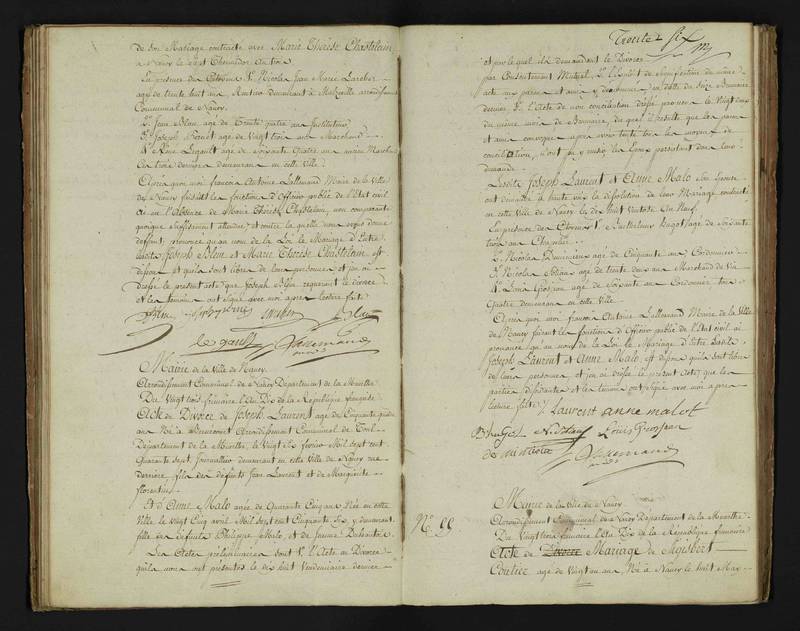 de son Mariage contracté avec Marie Therese Chastelain,
a Nancy le Sept Thermidor an trois
En presence des Citoyens 1° Nicolas Jean Marie Larcher
agé de trente huit ans Rentier demeurant à Malzeville arrondissement
Communal de Nancy.
2° Jean Blau agé de Trente quatre ans Instituteur
3° Joseph agé de Vingt trois ans Marchand
4° Legault agé de soixante Quatre ans ancien Marchand
les trois derniers demeurans en cette Ville.
Après quoi moi françois Antoine Lallemand Maire de la Ville
de Nancy faisant les fonctions d'Officier public de l'Etat civil
ai en l'absence de Marie Therese Chastelain, non comparante
quoique suffisament attendue, et contre laquelle nous avons donné
deffaut, prononcé qu'au nom de la Loi le Mariage d'Entre
lesdits Joseph et Marie Therese Chastelain est
dissous et qu'ils sont libres de leurs personnes et j'en ai
dressé le présent acte que Joseph requerant le divorce
et les temoins ont signé avec moi après lecture faite
Larcher
le gault Lallemand
Mairie de la Ville de Nancy.
Arrondissement Communal de Nancy Département de la Meurthe
Du Vingt trois frimaire l'An Dix de la République française
Acte de Divorce de Joseph Laurent agé de Cinquante quatre
ans Né à Arrondissement Communal de Toul
Département de la Meurthe, le Vingt Six fevrier Mil Sept cent
Quarante Sept, Journallier demeurant en cette Ville de Nancy rue
derriere, fils des défunts Jean Laurent et de Marguerite
florentin.
Et d'Anne Malo agée de Quarante Cinq ans Née en cette
Ville le Vingt Cinq avril Mil Sept cent Cinquante Six y demeurant,
fille des défunts Philippe Malo, et de Jeanne
Les Actes préliminaires sont 1° l'Acte de Divorce
qu'ils nous ont présentés le dix huit Vendémiaire dernier
Trente Six
et par lequel ils demandent le Divorce
par Consentement Mutuel. 2° L'
acte aux parens et amis y denommés en datte du Seize Brumaire
dernier 3° l'Acte de non conciliation dressé par nous le Vingt deux
du même mois de Brumaire, duquel il resulte que les parens
et amis convoqués après avoir tenté tous les moyens de
conciliation, n'ont pu y reussir les Epoux persistant dans leur
demande.
Lesdits Joseph Laurent et Anne Malo son Epouse
ont demandé à haute voix la dissolution de leur Mariage contracté
en cette Ville de Nancy le dix huit Ventose An Neuf.
En presence des Citoyens 1° Barthelemy Bagot agé de soixante
trois ans Chapelier
2° Nicolas agé de Cinquante ans Cordonnier
3° Nicolas agé de trente deux ans Marchand de Vin
4° Louis Grosjean agé de soixante ans Cordonnier tous
Quatre demeurans en cette Ville
Après quoi moi françois Antoine Lallemand Maire de la Ville
de Nancy faisant les fonctions d'Officier public de l'Etat civil ai
prononcé qu'au nom de la Loi le Mariage d'Entre lesdits
Joseph Laurent et Anne Malo est dissous qu'ils sont libres
de leurs personnes et j'en ai dressé le présent Acte que les
parties Divorcantes et les temoins ont Signé avec moi après
lecture faite. J Laurent anne malot
Louis Grosjean
Lallemand
N° 99.
Mairie de la Ville de Nancy
Arrondissement Communal de Nancy Département de la Meurthe
Du Vingt trois frimaire l'An Dix de la République française
Acte de Divorce Mariage de Sigisbert
Coutier agé de Vingt un ans Né à Nancy le huit Mars